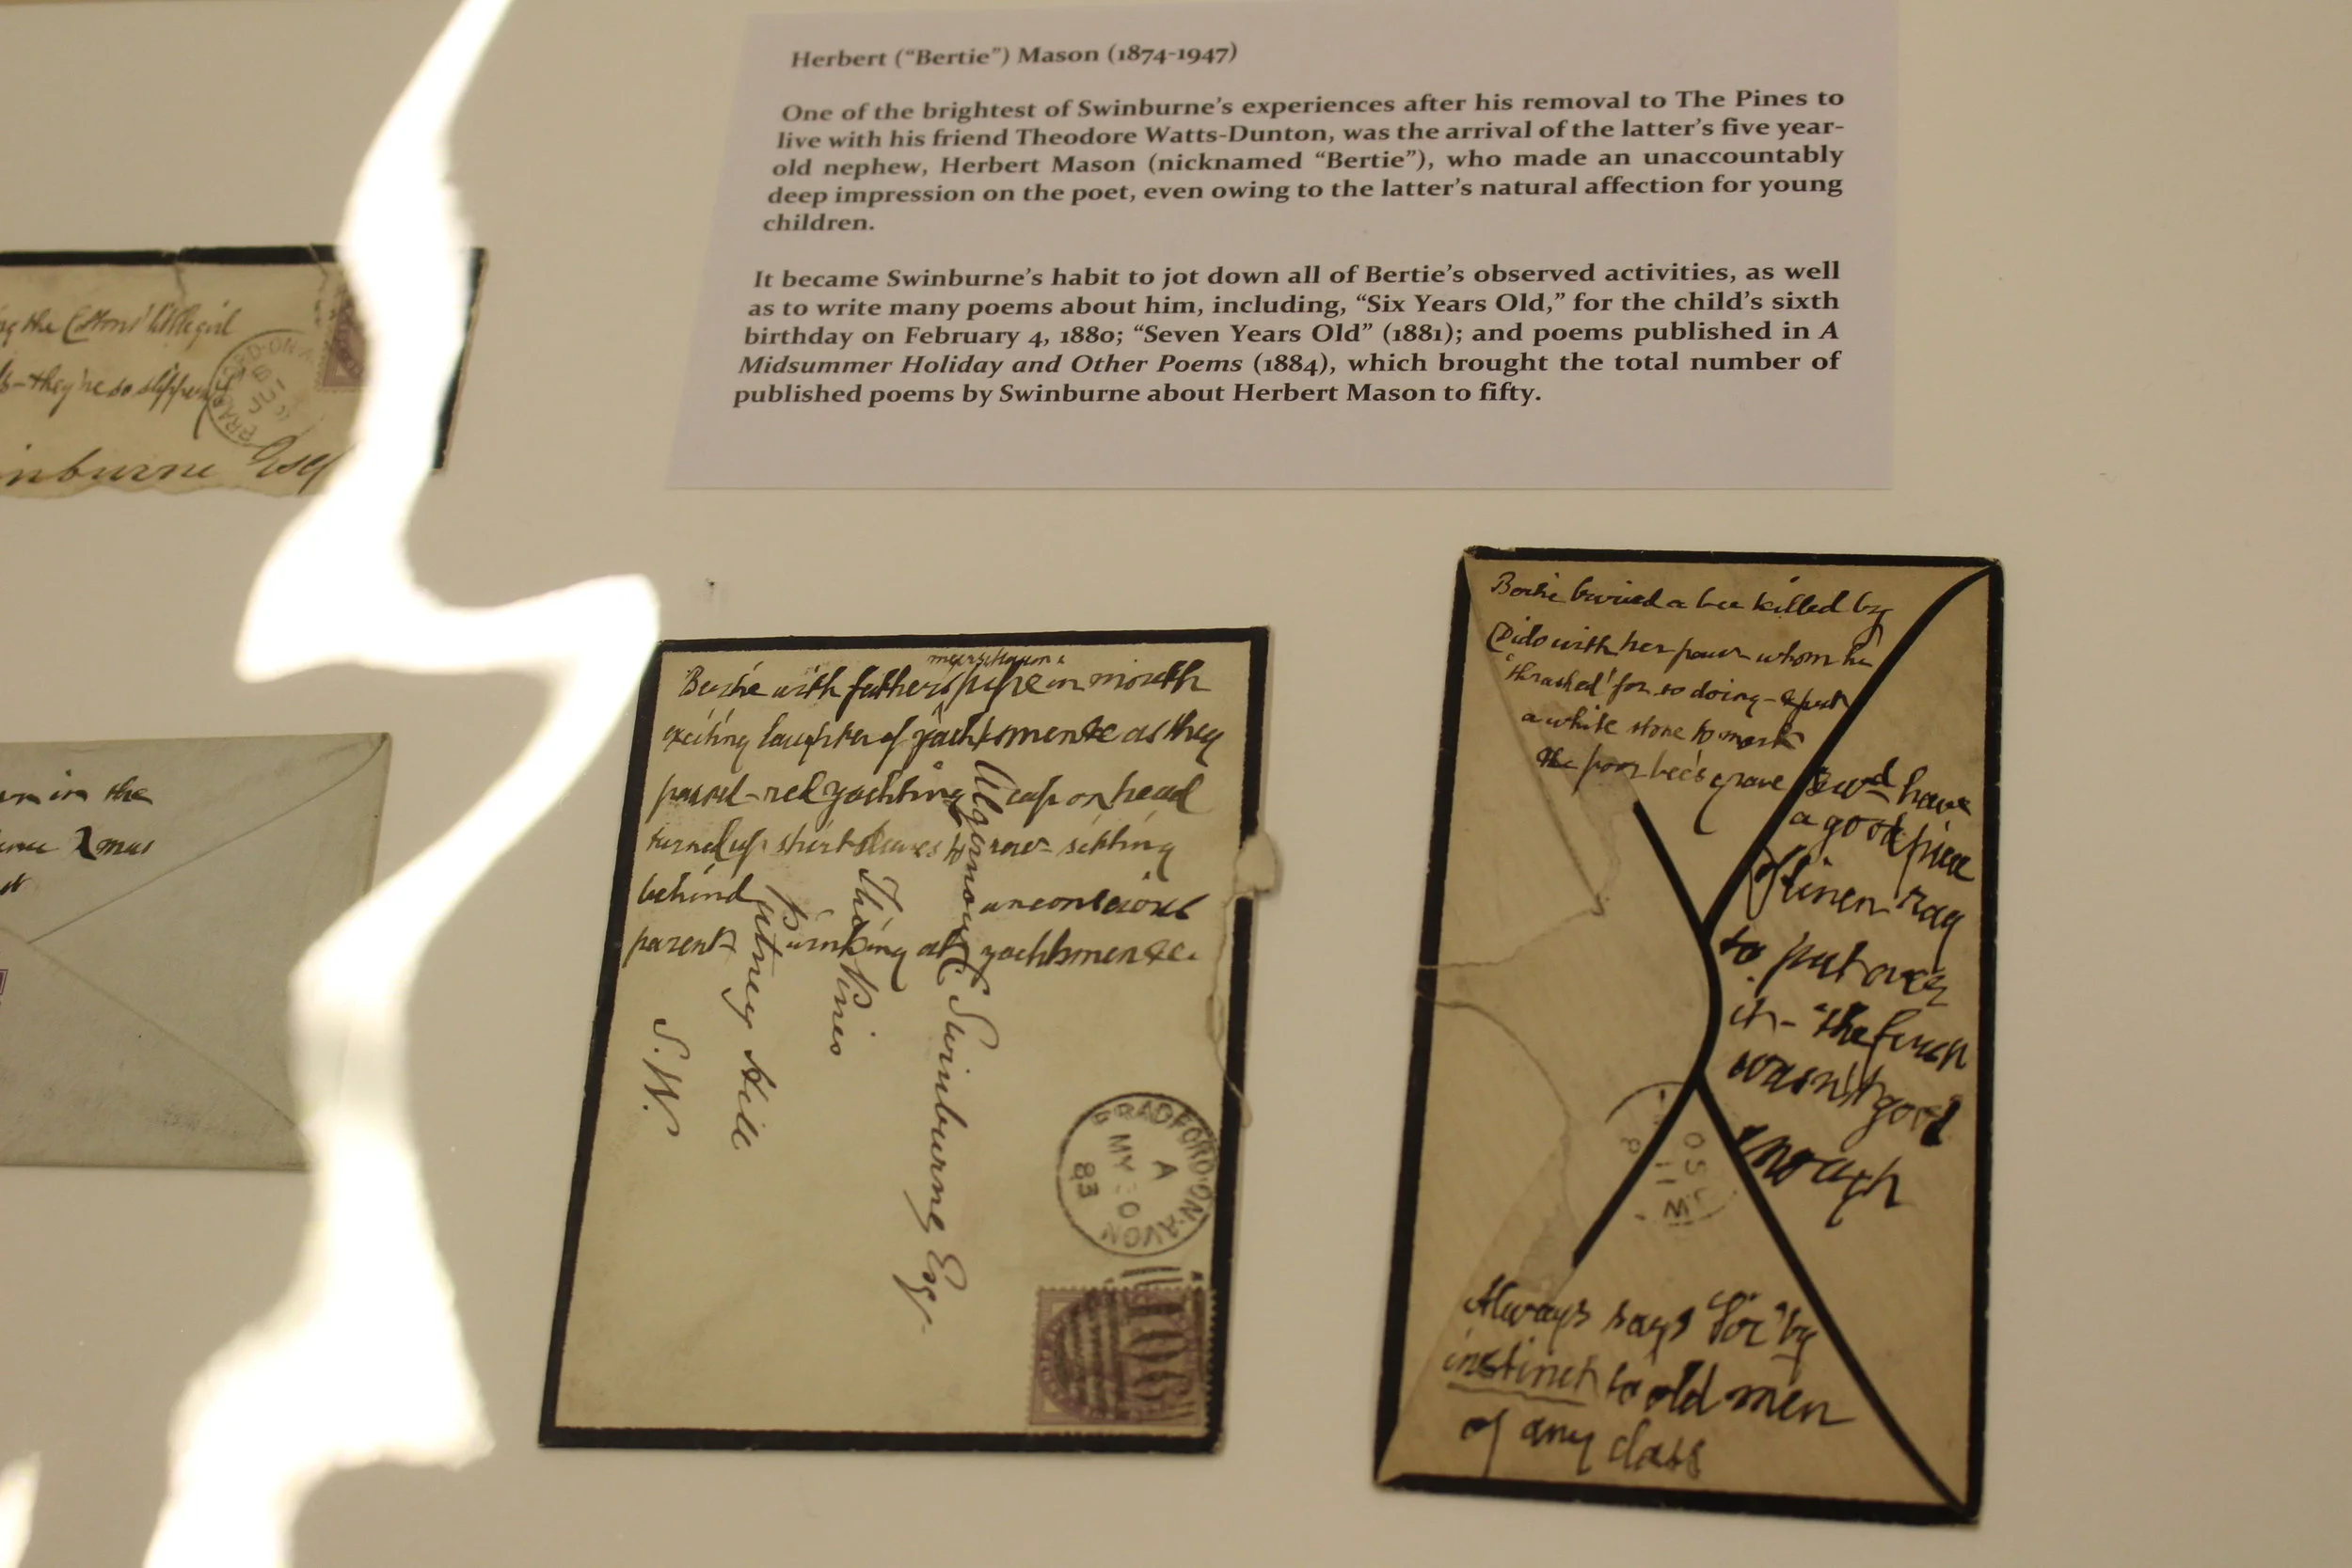 Herbert (“Bertie”) Mason (1874-1947)
One of the brightest of Swinburne’s experiences after his removal to The Pines to
live with his friend Theodore Watts-Dunton, was the arrival of the latter’s five year-
old nephew, Herbert Mason (nicknamed “Bertie”), who made an unaccountably
deep impression on the poet, even owing to the latter’s natural affection for young
children.
It became Swinburne’s habit to jot down all of Bertie’s observed activities, as well
as to write many poems about him, including, “Six Years Old,” for the child’s sixth
birthday on February 4, 1880; “Seven Years Old” (1881); and poems published in A
Midsummer Holiday and Other Poems (1884), which brought the total number of
published poems by Swinburne about Herbert Mason to fifty.
the Cottons' little girl
they're so slippery
inburne Esq
in the
Xmas
meerschaum
Bertie with father's pipe in mouth
exciting laughter of yachtsmen &c as they
passed - red yachting cap on head
turned up shirt sleeves to row - sitting
behind unconscious
parent winking at yachtsmen &c.
Algernon C Swinburne Esq.
The Pines
Putney Hill
S.W.
BRADFORD-ON-AVON
A
MY 30
83
Bertie buried a bee killed by
Dido with her paw whom he
'thrashed' for so doing - & put
a white stone to mark
the poor bee's grave
& wd have
a good piece
of linen rag
to put over
it - the fern
wasn't good
enough
Always says 'Sir' by
instinct to old men
of any class